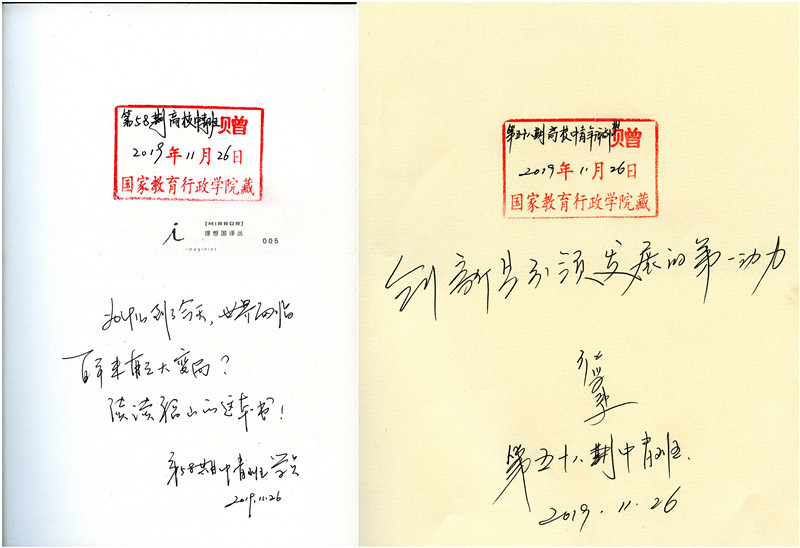 第58期高校中青班赠
2019年11月26日
国家教育行政学院藏
[MIRROR]
理想国译丛
imaginist
005
到了今天,世界面临
百年未有之大变局?
读读 这本书!
第58期中青班学员
2019.11.26
第五十八期高校中青年 赠
2019年11月26日
国家教育行政学院藏
创新是引领发展的第一动力
第五十八期中青班.
2019.11.26